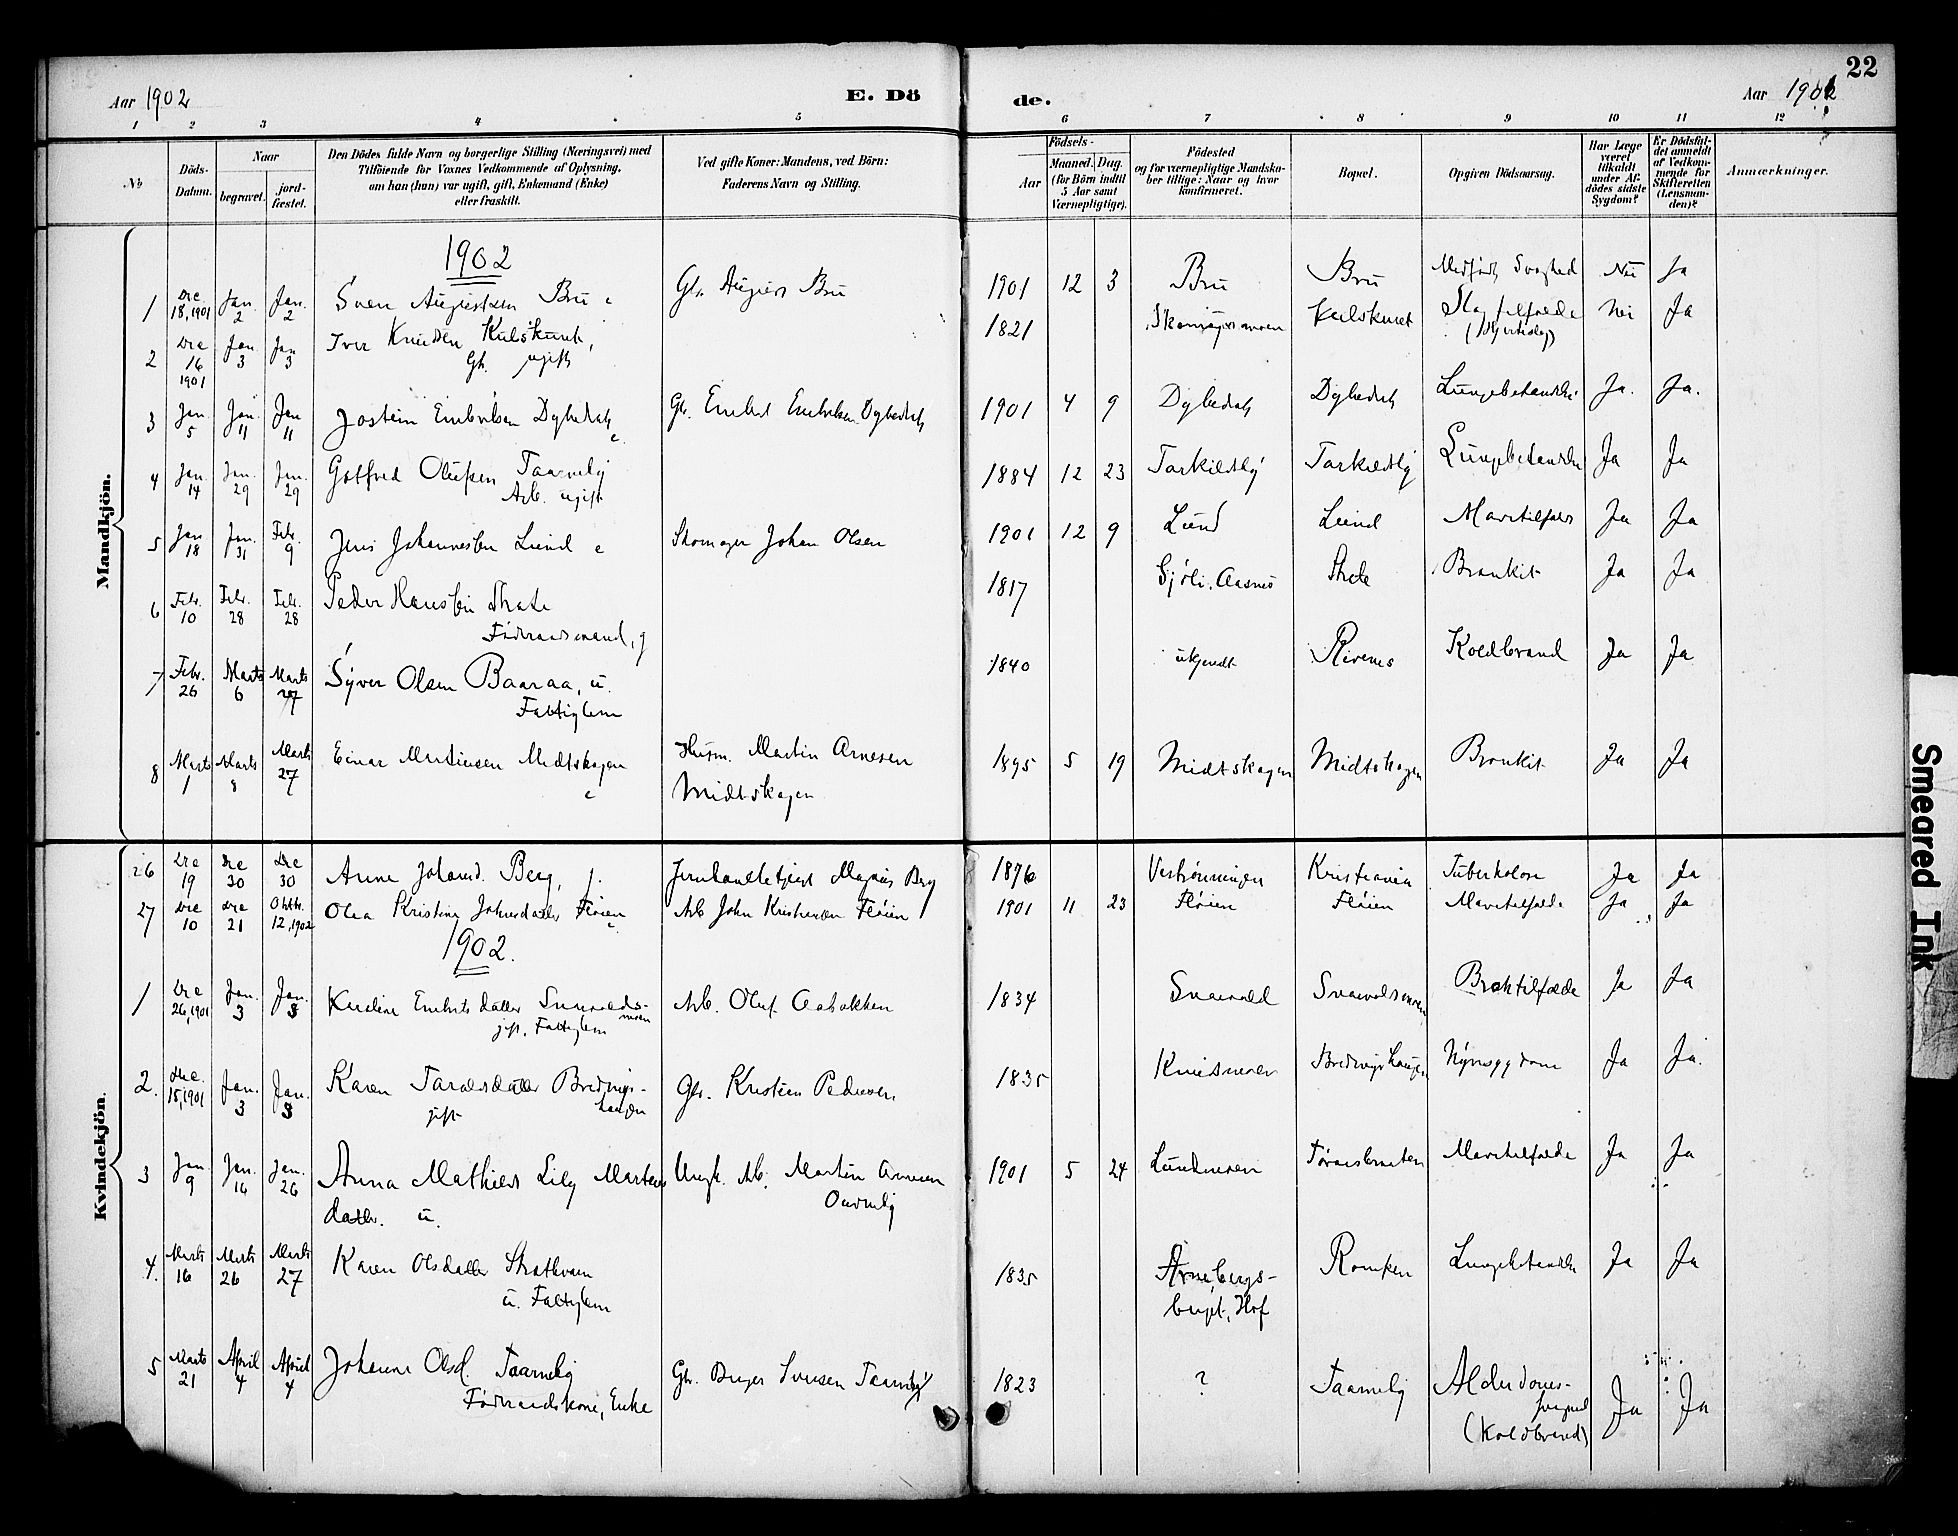 22
Aar 1902
E. Dö
de.
Aar 1902
1 2 3 4 5 6 7 8 9 10 11 12
No
Döds-Datum.
Naar
begravet.
jord-fæstet.
Den Dödes fulde Navn og borgerlige Stilling (Næringsvei) med
Tilföiende for Voxnes Vedkommende af Oplysning,
om han (hun) var ugift, gift, Enkemand (Enke)
eller fraskilt.
Ved gifte Koner: Mandens, ved Börn:
Faderens Navn og Stilling.
Födsels-
Aar
Maaned. Dag.
(for Börn indtil
5 Aar samt
Værnepligtige).
Födested
og for værnepligtige Mandskaber tillige: Naar og hvor
konfirmeret.
Bopæl.
Opgiven Dödsaarsag.
Har Læge
været
tilkaldt
under Afdödes sidste
Sygdom?
Er Dödsfaldet anmeldt
af Vedkommende for
Skifteretten
(Lensmanden)?
Anmærkninger.
Mandkjön.
1902
1 Dec 18, 1901 Jan. 2 Jan. 2 Sven Augustsen Bru Gb. August Bru 1901 12 3 Bru Bru Medfødt Svaghed Nei Ja
2 Dec 16 1901 Jan 3 Jan 3 Iver Knudsen Kulskuret, Gb. ugift 1821 Kulskuret Slagtilfælde Nei Ja
3 Jan. 5 Jan. 11 Jan 11 Jostein Embretsen Dybedal Gb. Embret Embretsen Dybedal 1901 4 9 Dybedal Dybedal Lungebetændelse Ja. Ja.
4 Jan. 14 Jan. 29 Jan. 29 Gotfred Olufsen Taarneby Arb. ugift 1884 12 23 Torkildsby Torkildsby Lungebetændelse Ja Ja
5 Jan 18 Jan. 31 Febr. 9 Jens Johannessen Lund Skomager Johan Olsen 1901 12 9 Lund Lund Mavetilfælde Ja Ja
6 Febr. 10 Febr. 28 Febr. 28 Peder Hansen Strate Føderaadsmand, g 1817 Sjøli, Aasnes Strate Bronkit Ja Ja
7 Febr. 26 Marts 6 Marts 27 Syver Olsen Baaraa, u. Fattiglem 1840 ukjendt Revenes Koldbrand Ja Ja
8 Marts 1 Marts 8 Marts 27 Einar Martinsen Midtskogen Husm. Martin Arnesen Midtskogen 1895 5 19 Midtskogen Midtskogen Bronkit Ja Ja
Kvindekjön.
26 Dec 19 Dec 30 Dec 30 Anne Johansd. Berg, g. Magnus Berg 1876 Kristiania Tuberkulose Ja Ja
27 Dec 10 Dec 21 Oktbr. 12, 1902 Olea Kristine Johnsdatter Fløien Arb John Kristiansen Fløien 1901 11 23 Fløien Fløien Mavetilfælde Ja Ja
1902.
1 Dec 26, 1901 Jan. 3 Jan. 3 Embretsdatter gift, Fattiglem Arb. Oluf Aabakken 1834 Svaevold Broktilfælde Ja Ja
2. Dec. 15, 1901 Jan. 3 Jan. 3 Karen Taraldsdatter Bredvigs-haugen gift Gb. Kristen Pedersen 1835 Bredvigshaugen Nyresygdom Ja Ja
3 Jan. 9 Jan. 16 Jan. 26 Anna Mathilde Lily Martins datter. u. Ungk. Arb. Martin Arnesen 1901 5 24 Lundmoen Mavetilfælde Ja Ja
4. Marts 16 Marts 26 Marts 27 Karen Olsdatter u. Fattiglem 1835 Arnebergs-bygd, Hof Lungebetændelse Ja Ja
5 Marts 21 April 4 April 4 Johanne Olsd. Taarneby Føderaadskone, Enke Gb. Syver Svensen Taarneby 1823 ? Taarneby Alderdoms-svaghed (Koldbrand) Ja Ja
Smeared Ink